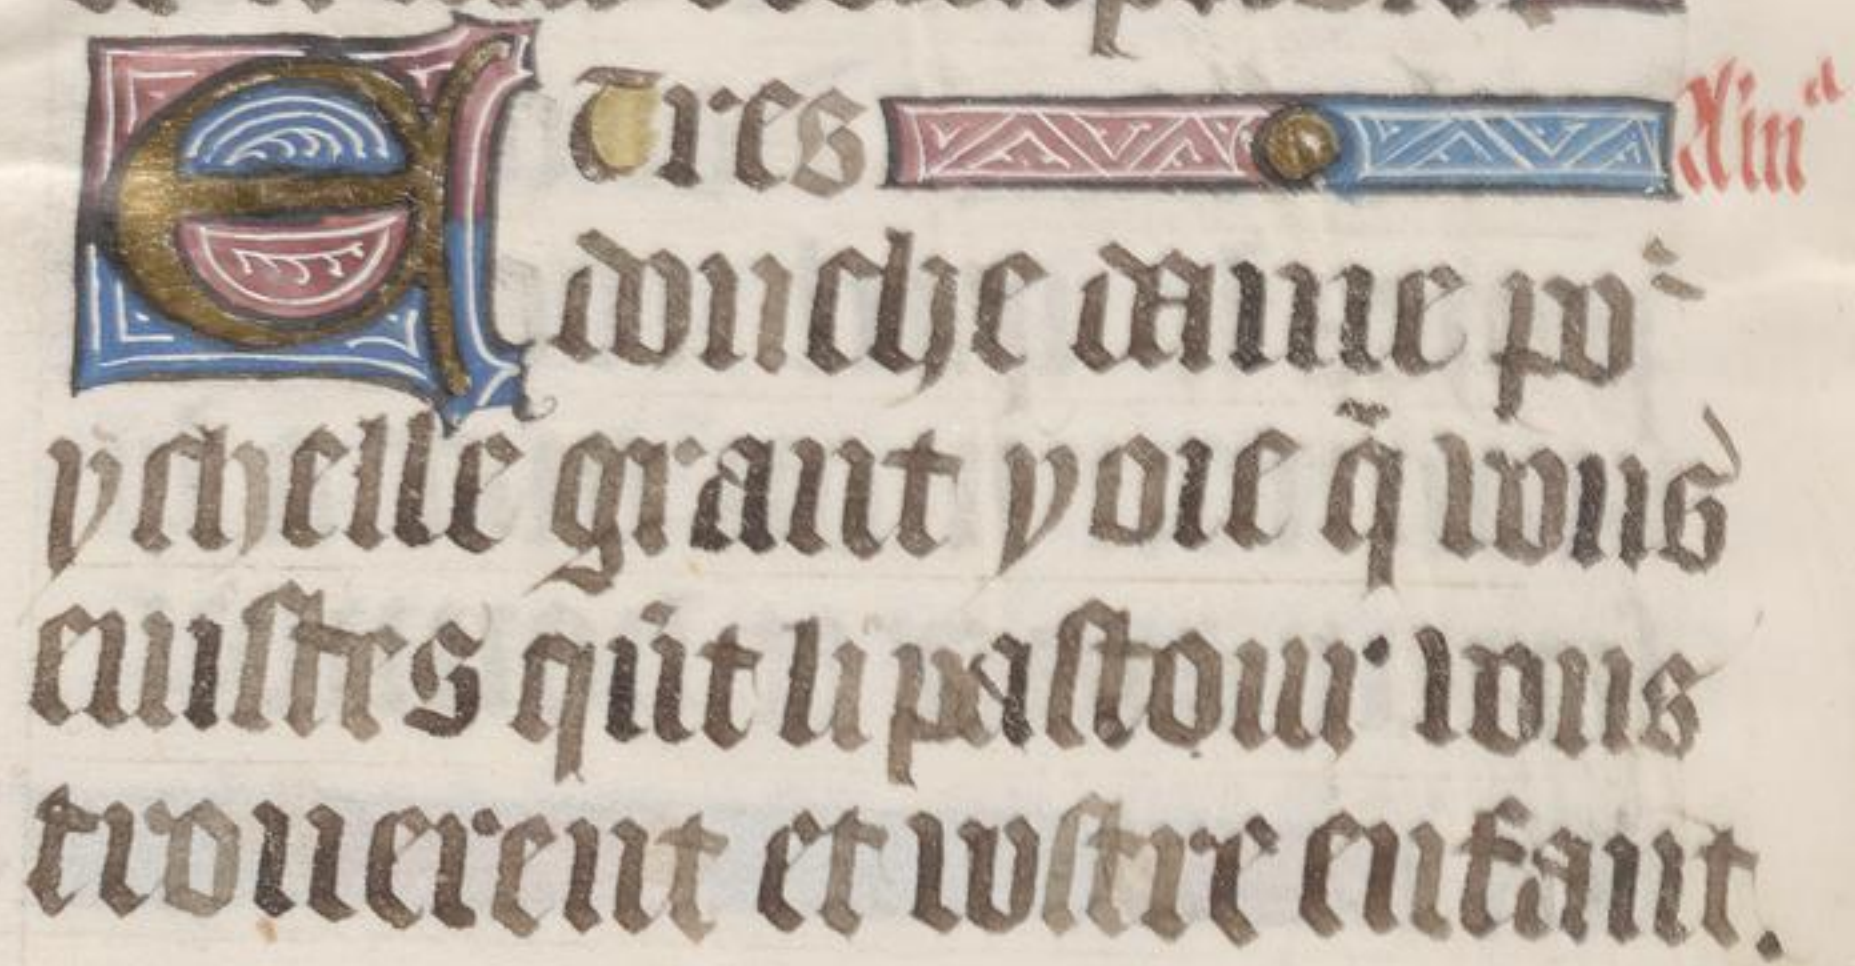 E Tres
douche dame po᷑
ychelle grant yoie q̃ vous
euistes qũt li pastour vous
trouuerent et vostre enfant.